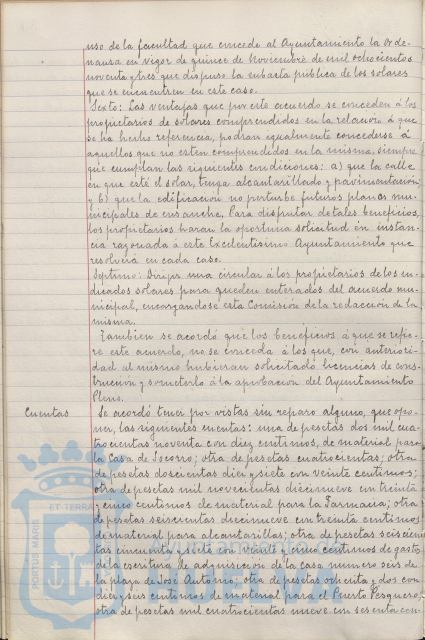 uso de la facultad que concede al Ayuntamiento la Orde-
nanza en vigor de quince de Noviembre de mil ochocientos
noventa y tres que dispuso la subasta publica de los solares
que se encuentren en este caso.
Sexto: Las ventajas que por este acuerdo se conceden á los
propietarios de solares comprendidos en la relacion á que
se ha hecho referencia, podran igualmente concederse á
aquellos que no esten comprendidos en la misma, siempre
que cumplan las siguientes condiciones: a) que la calle
en que esté el solar, tenga alcantarillado y pavimentacion
y b) que la edificacion no perturbe futuros planos mu-
nicipales de ensanche. Para disfrutar de tales beneficios,
los propietarios haran la oportuna solicitud en instan-
cia razonada á este Excelentisimo Ayuntamiento que
resolverá en cada caso.
Septimo: Dirigir una circular á los propietarios de los in-
dicados solares para queden enterados del acuerdo mu-
nicipal, encargandose esta Comisión de la redaccion de la
misma.
Tambien se acordó que los beneficios á que se refie-
re este acuerdo, no se conceda á los que, con anteriori-
dad al mismo hubieran solicitado licencias de cons-
truccion y someterlo á la aprobacion del Ayuntamiento
Pleno.
Cuentas
Se acordó tener por vistas sin reparo alguno, que opo-
ner, las siguientes cuentas: una de pesetas dos mil cua-
trocientas noventa con diez centimos, de material para
la Casa de Socorro; otra de pesetas cuatrocientas; otra
de pesetas doscientas diez y siete con veinte centimos;
otra de pesetas mil novecientas diecinueve con treinta
y cinco centimos de material para la Farmacia; otra
de pesetas seiscientas diecinueve con treinta centimos
de material para alcantarillas; otra de pesetas seiscien-
tas cincuenta y siete con veinte y cinco centimos de gastos
de la escritura de adquisicion de la casa numero seis de
la plaza de José Antonio; otra de pesetas ochenta y dos con
diez y seis centimos de material para el Puerto Pesquero;
otra de pesetas mil cuatrocientas nueve con sesenta con
PORTUS MARIS
ET TERRA